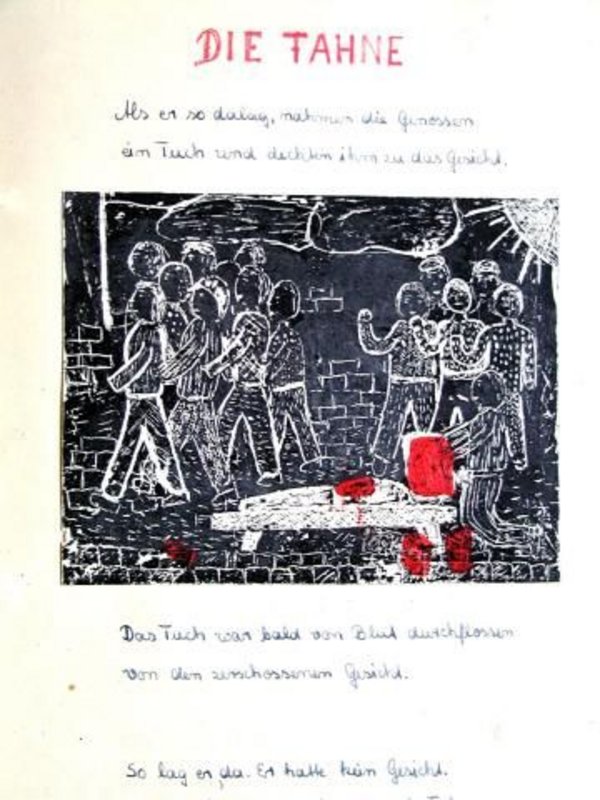 DIE TAHNE
Als er so dalag, nahmen die Genossen
ein Tuch und deckten ihm zu das Gesicht.
Das Tuch war bald von Blut durchflossen
von dem zerschossenen Gesicht.
So lag er da. Er hatte kein Gesicht.